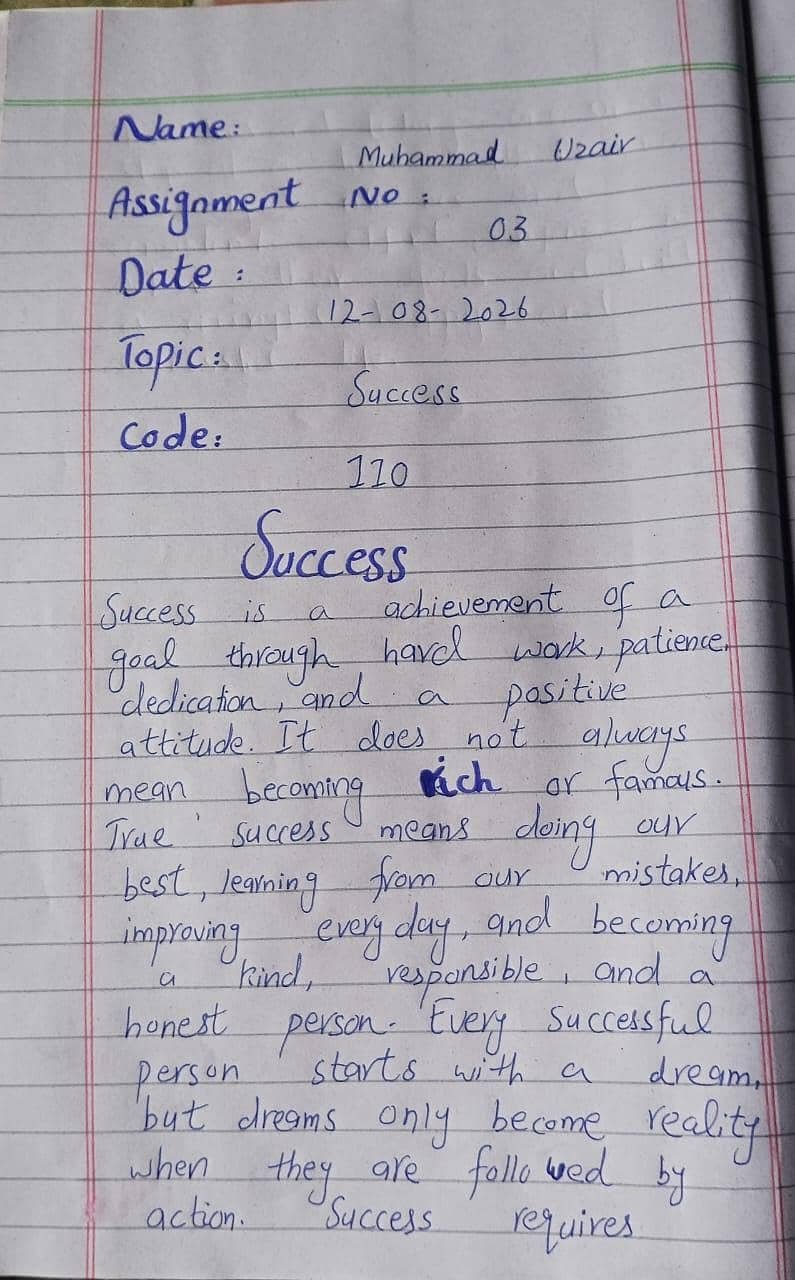 Name:
Muhammad Uzair
Assignment No :
03
Date :
12-08-2026
Topic:
Success
Code:
110
Success
Success is a achievement of a
goal through hard work, patience,
dedication, and a positive
attitude. It does not always
mean becoming rich or famous.
True success means doing our
best, learning from our mistakes,
improving everyday, and becoming
a kind, responsible, and a
honest person. Every successful
person starts with a dream,
but dreams only become reality
when they are followed by
action. Success requires